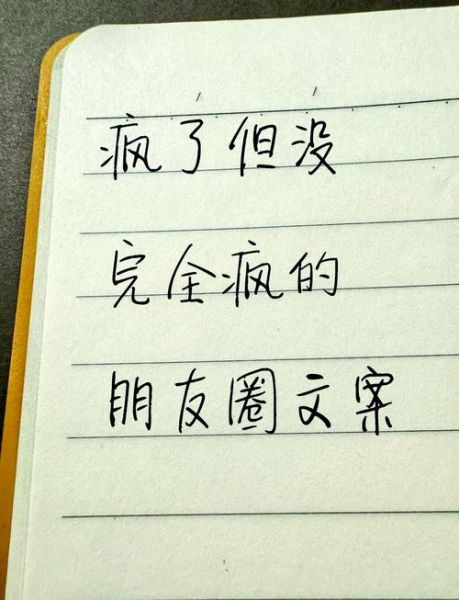 疯了但没
完全疯的
朋友圈文案